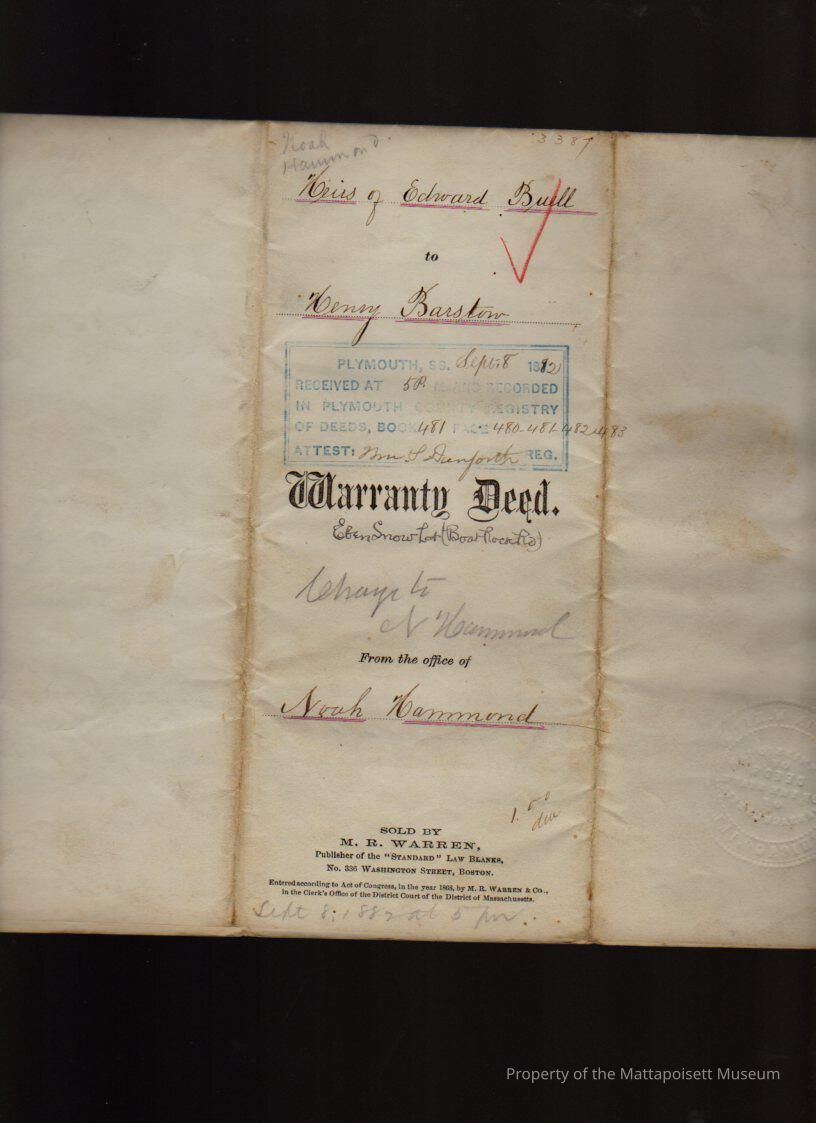 Noah
Hammond
3387
Heirs of Edward Buell
to
Henry Barstow
PLYMOUTH, SS. Sept. 8 1882
RECEIVED AT 5 P. M. AND RECORDED
IN PLYMOUTH COUNTY REGISTRY
OF DEEDS, BOOK 481 PAGE 480-481-482-483
ATTEST: Wm S Danforth REG.
Warranty Deed.
Eben Snow Lot (Boat Rock Rd)
Charge to
N Hammond
From the office of
Noah Hammond
1.00
due
SOLD BY
M. R. WARREN,
Publisher of the "STANDARD" LAW BLANKS,
No. 336 WASHINGTON STREET, BOSTON.
Entered according to Act of Congress, in the year 1868, by M. R. WARREN & CO.,
in the Clerk's Office of the District Court of the District of Massachusetts.
Sept 8, 1882 at 5 pm.
Property of the Mattapoisett Museum